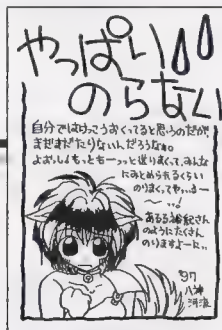 やっぱい
のらない
自分ではけっこうおくってると思うのだが、
まだまだたりないんだろうなぁ。
よおし、もっともーっと送りまくって、みんな
にみとめられるくらい
のりまくてや、、るー
〜〜、、!
あるる
さん
のようにたくさん
のりますよーに、、
'97
八神